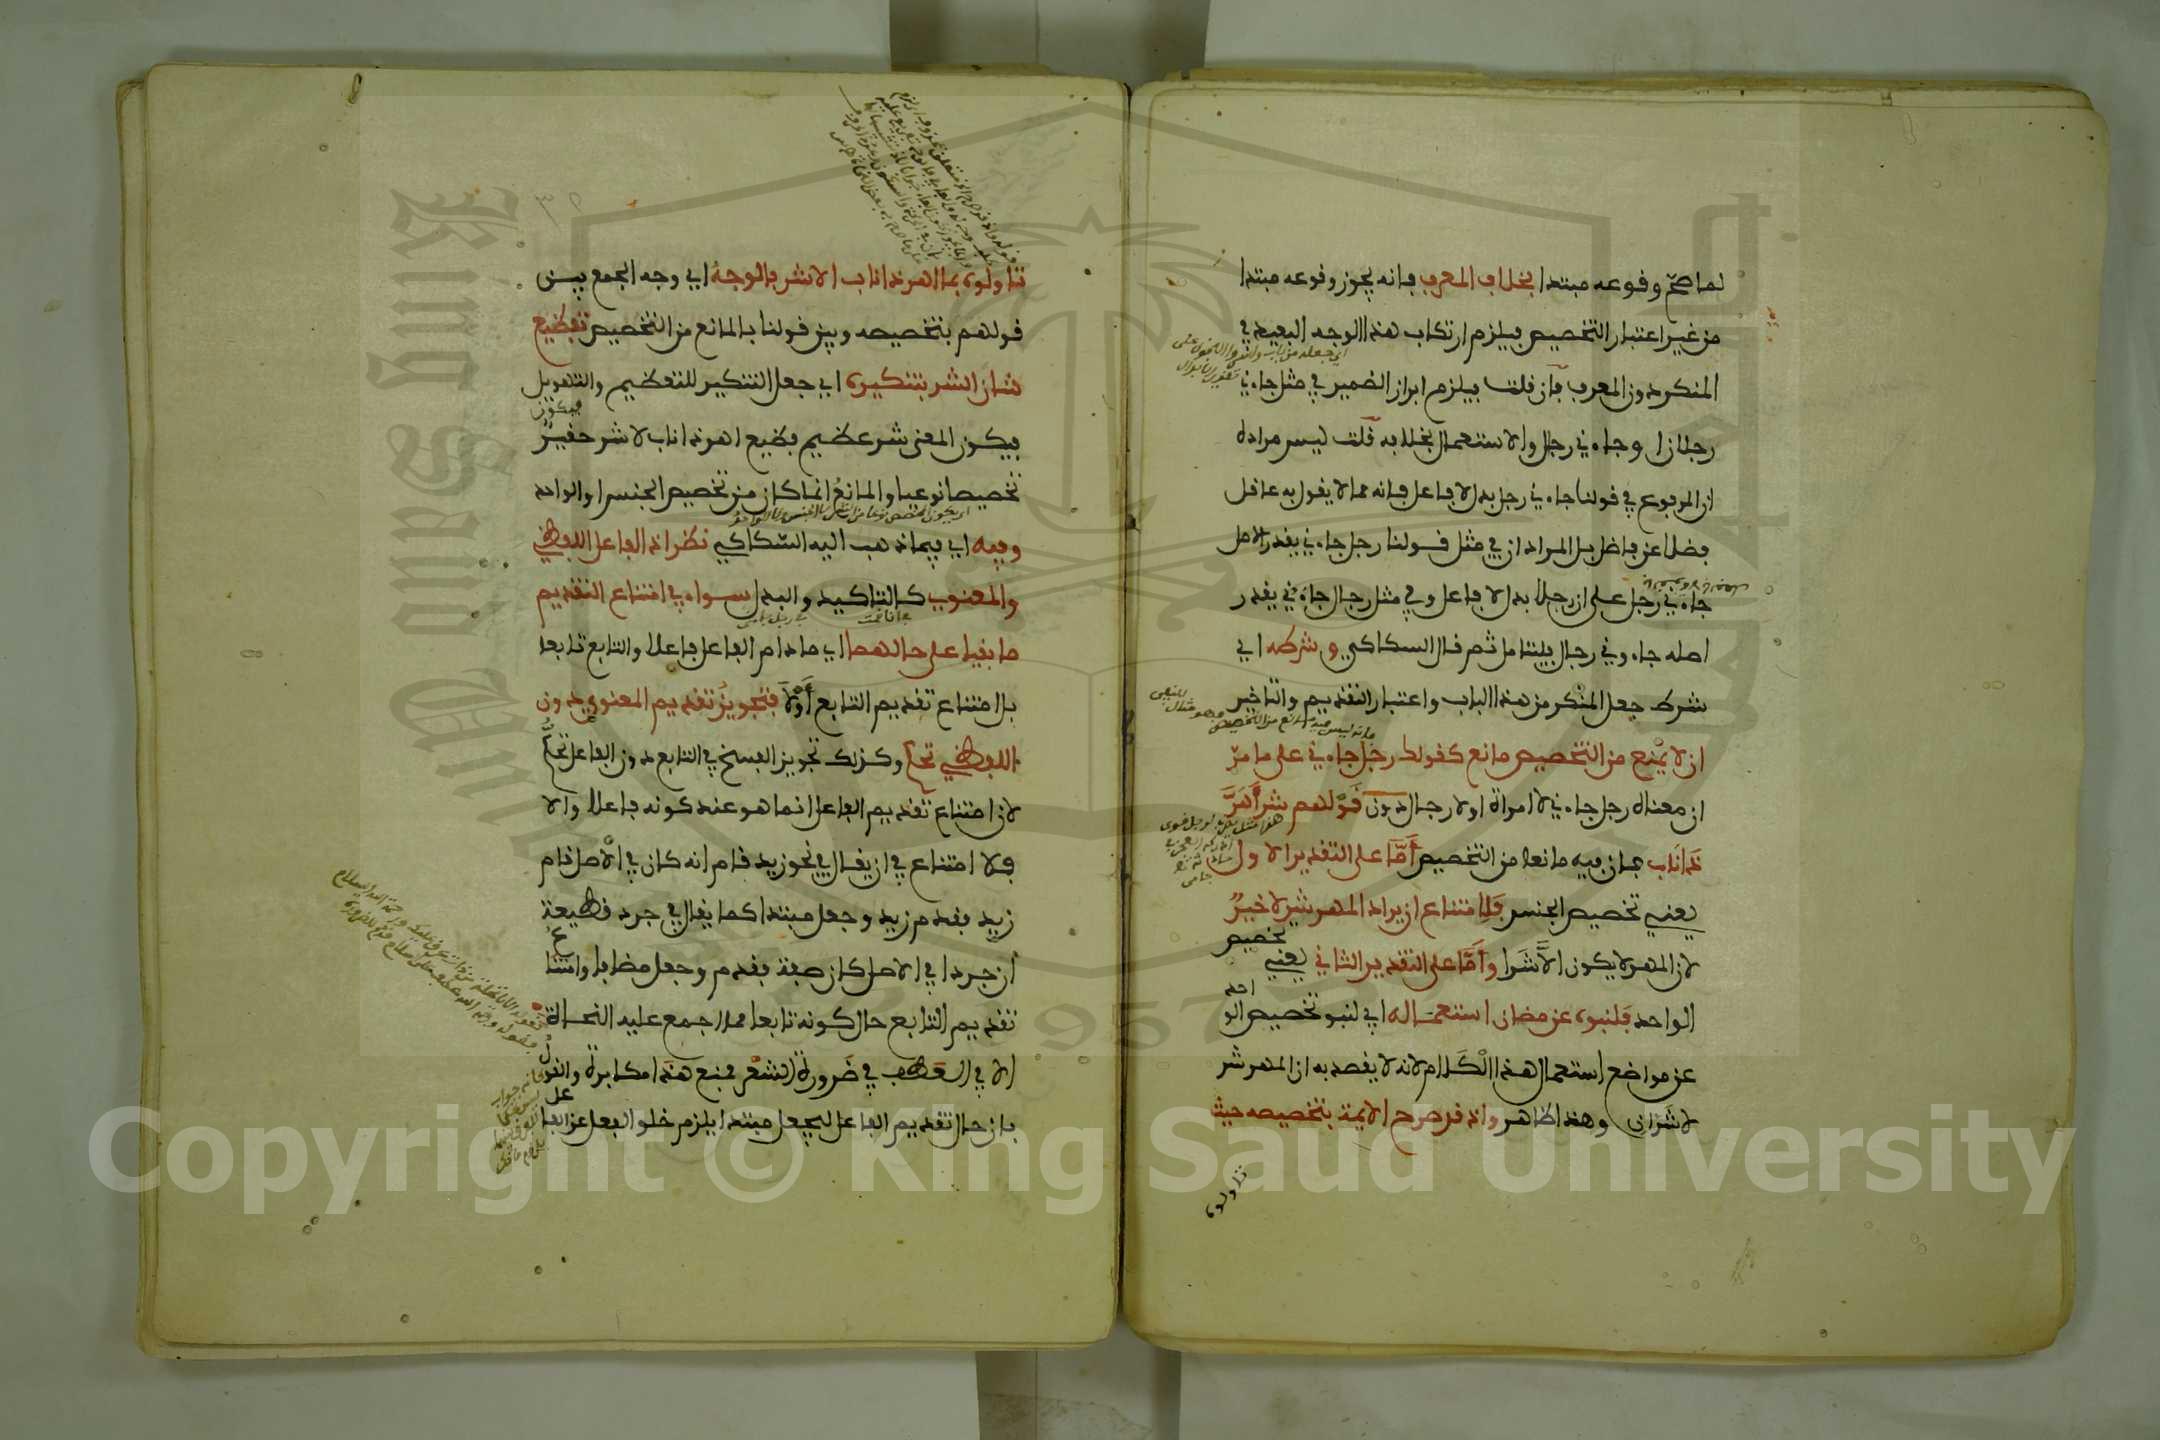 لما صح وقوعه مبتدا بخلاف المعرف فانه يجوز وقوعه مبتدا
من غير اعتبار التخصيص فيلزم ارتكاب هذا الوجه البعيد في
المنكر دون المعرف فان قلت فيلزم ابراز الضمير في مثل جاءني
رجلان او جاءني رجال والاستعمال بخلافه قلت ليس مراده
ان المرفوع في قولنا جاءني رجل بدل لا فاعل فانه مما لا يقول به عاقل
فضلا عن فاضل بل المراد ان في مثل قولنا رجل جاءني يقدر الاصل
جاءني رجل على ان رجلا بدل لا فاعل وفي مثل رجال جاءني يقدر
اصله جاءوني رجال فليتامل ثم قال السكاكي وشرطه اي
شرط جعل المنكر من هذا الباب واعتبار التقديم والتاخير
ان لا يمنع من التخصيص مانع كقولك رجل جاءني على ما مر
ان معناه رجل جاءني لا امراة او لا رجلان دون قولهم شر أهر
ذا ناب فان فيه مانعا من التخصيص أما على التقدير الاول
يعني تخصيص الجنس فلامتناع ان يراد المهر شر لا خير
لان المهر لا يكون الا شرا وأما على التقدير الثاني يعني تخصيص
الواحد فلنبوه عن مظان استعماله اي لنبو تخصيص الواحد
عن مواضع استعمال هذا الكلام لانه لا يقصد به ان المهر شر
لا شران وهذا ظاهر واذ قد صرح الايمة بتخصيصه حيث
تاولوه
تاولوه بما اهر ذا ناب الا شر فالوجه اي وجه الجمع بين
قولهم بتخصيصه وبين قولنا بالمانع من التخصيص تفظيع
شان الشر بتنكيره اي جعل التنكير للتعظيم والتهويل
فيكون المعنى شر عظيم فظيع اهر ذا ناب لا شر حقير فيكون
تخصيصا نوعيا والمانع انما كان من تخصيص الجنس او الواحد
وفيه اي فيما ذهب اليه السكاكي نظر اذ الفاعل اللفظي
والمعنوي كالتاكيد والبدل سواء في امتناع التقديم
ما بقيا على حالهما اي ما دام الفاعل فاعلا والتابع تابعا
بل امتناع تقديم التابع أولى فتجويز تقديم المعنوي دون
اللفظي تحكم وكذلك تجويز الفسخ في التابع دون الفاعل تحكم
لان امتناع تقديم الفاعل انما هو عند كونه فاعلا والا
فلا امتناع في ان يقال في نحو زيد قام انه كان في الأصل قام
زيد فقدم زيد وجعل مبتدا كما يقال في جرد قطيفة
ان جردا في الاصل كان صفة فقدم وجعل مضافا وامتناع
تقديم التابع حال كونه تابعا مما اجمع عليه النحاة
الا في العطف في ضرورة الشعر فمنع هذا مكابرة والقول
بان حال تقديم الفاعل ليجعل مبتدا يلزم خلو الفعل عن الفاعل
Copyright © King Saud University
King Saud University
1957